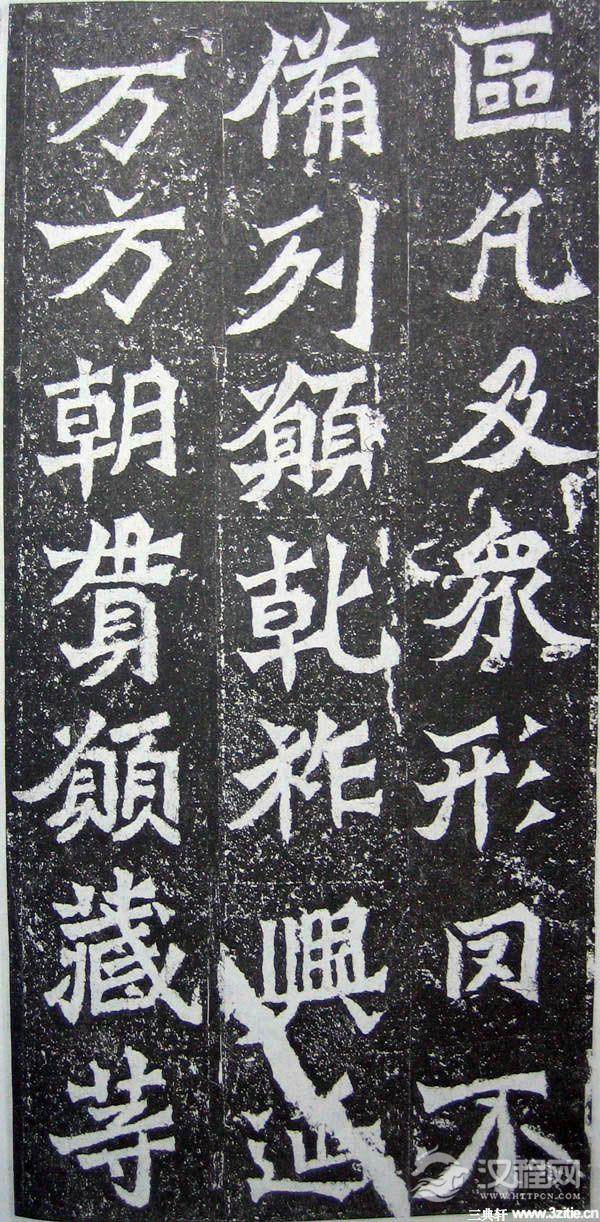 區凡及衆形罔不
備列願乾祚興延
万方朝貫願藏等
汉程网
WWW.HTTPCN.COM
三典轩 www.3zitie.cn